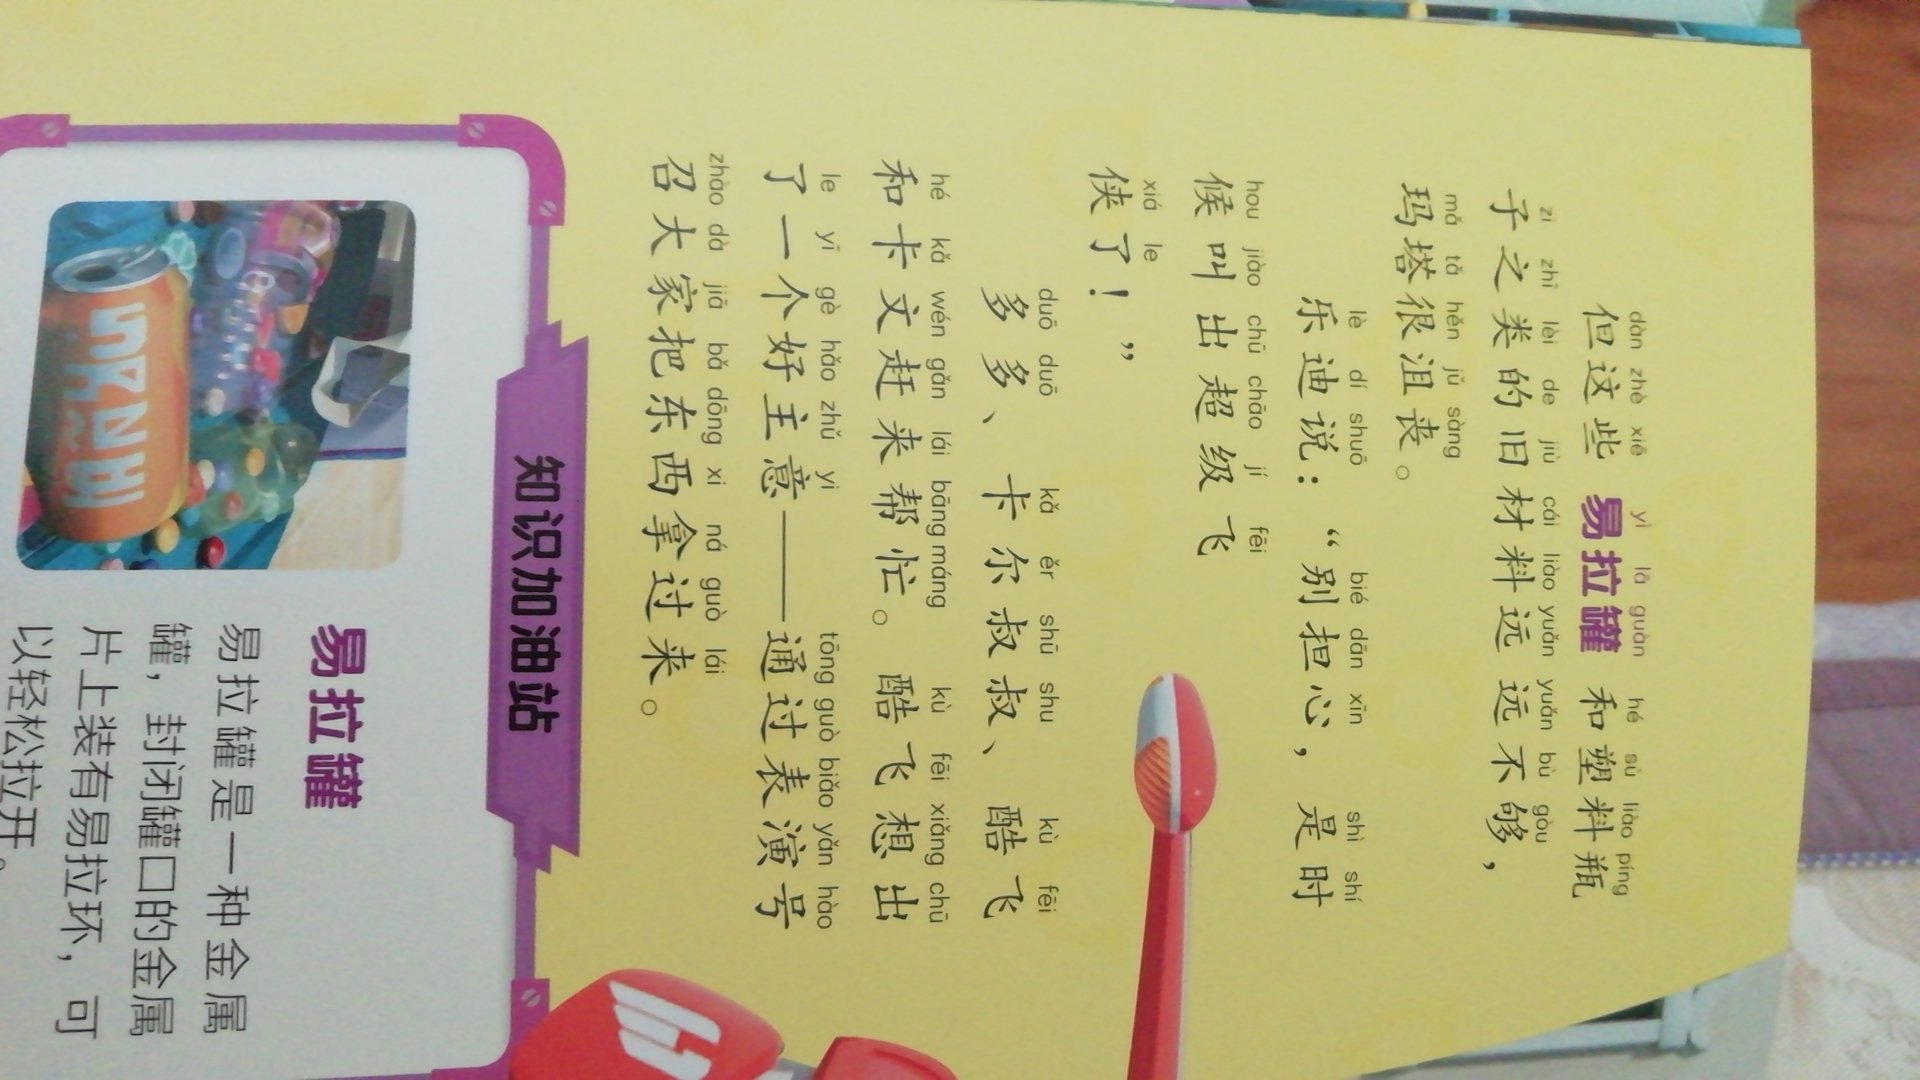 dàn zhè xiē yì lā guàn hé sù liào píng
但这些 易拉罐 和塑料瓶
zi zhī lèi de jiù cái liào yuǎn yuǎn bù gòu
子之类的旧材料远远不够，
mǎ tǎ hěn jǔ sàng
玛塔很沮丧。
lè dí shuō bié dān xīn shì shí
乐迪说：“别担心，是时
hou jiào chū chāo jí fēi
候叫出超级飞
xiá le
侠了！”
duō duō kǎ ěr shū shu kù fēi
多多、卡尔叔叔、酷飞
hé kǎ wén gǎn lái bāng máng kù fēi xiǎng chū
和卡文赶来帮忙。酷飞想出
le yī gè hǎo zhǔ yi tōng guò biǎo yǎn hào
了一个好主意——通过表演号
zhào dà jiā bǎ dōng xi ná guò lái
召大家把东西拿过来。
知识加油站
易拉罐
易拉罐是一种金属
罐，封闭罐口的金属
片上装有易拉环，可
以轻松拉开。